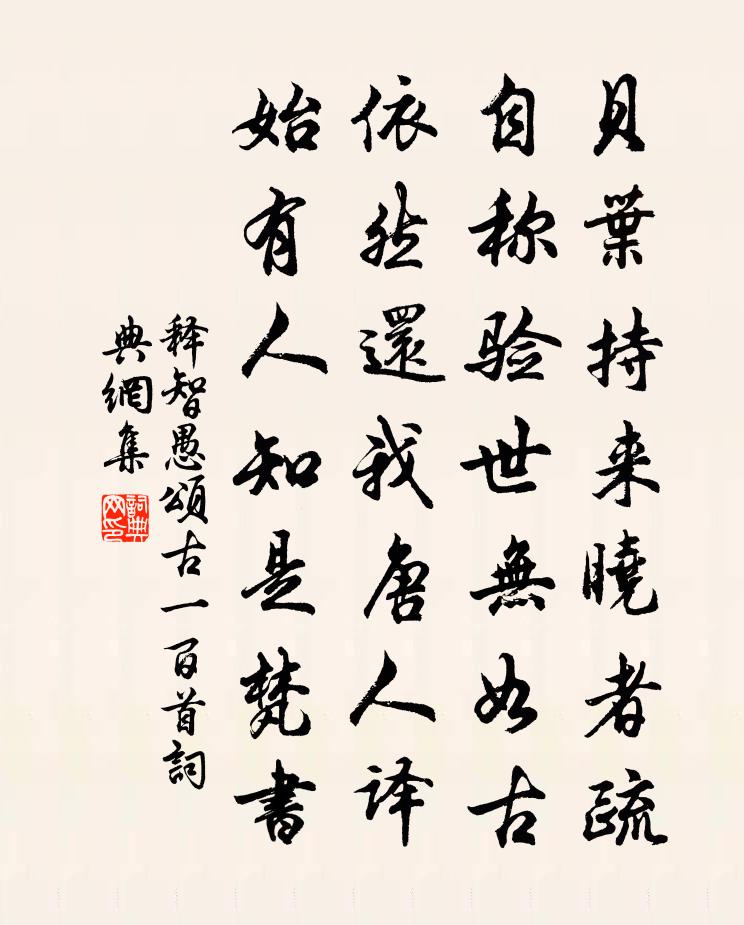 貝葉持来曉者疏
自称验世無如古
依然還我唐人译
始有人知是梵書
释智愚頌古一百首詞
典網集
詞典
网印